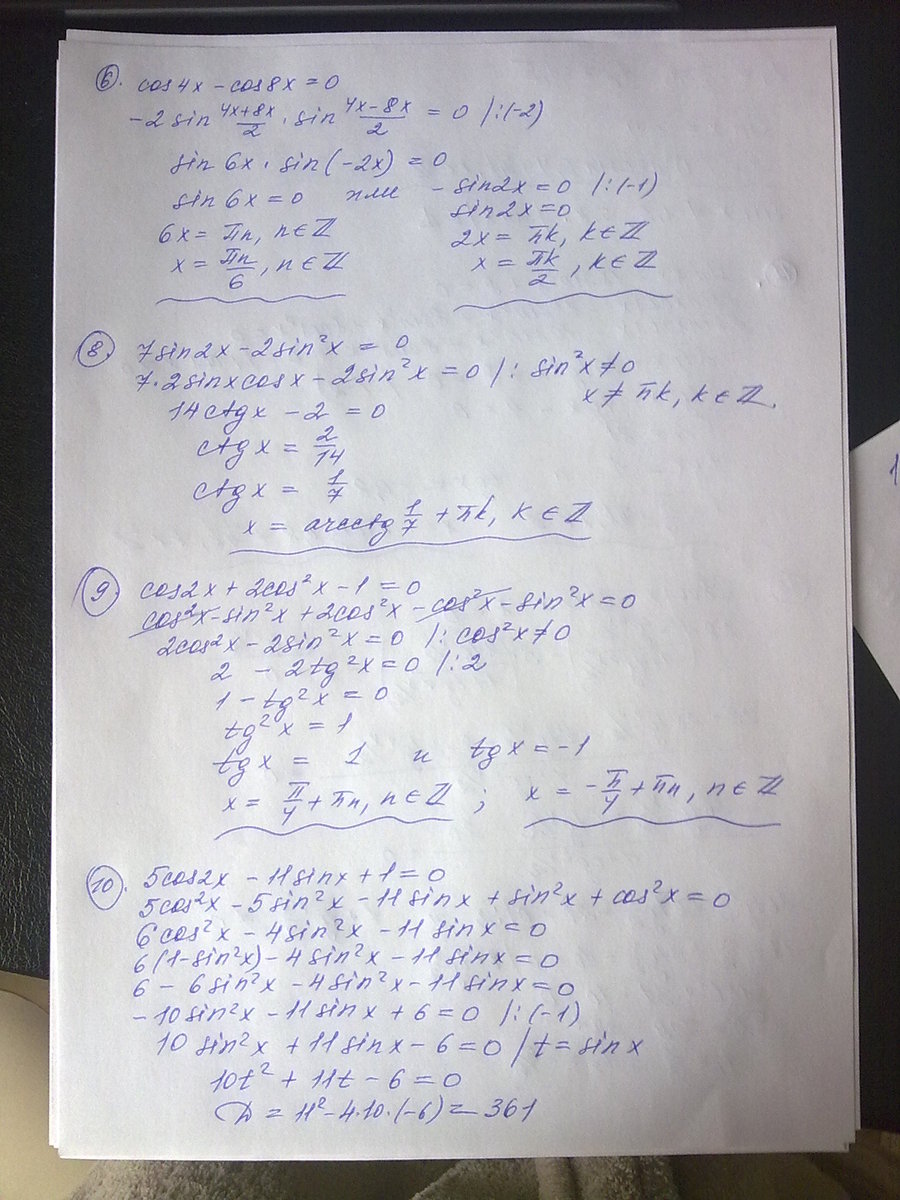 6. cos4x - cos8x = 0
-2 sin (4x+8x)/2 · sin (4x-8x)/2 = 0 /:(-2)
sin 6x · sin(-2x) = 0
sin 6x = 0 или - sin2x = 0 /:(-1)
sin2x = 0
6x = πn, n∈ℤ 2x = πk, k∈ℤ
x = πn/6, n∈ℤ x = πk/2, k∈ℤ
8. 7sin2x - 2sin²x = 0
7·2sinxcosx - 2sin²x = 0 /: sin²x≠0
x ≠ πk, k∈ℤ.
14ctgx - 2 = 0
ctgx = 2/14
ctgx = 1/7
x = arcctg 1/7 + πk, k∈ℤ
9. cos2x + 2cos²x - 1 = 0
cos²x - sin²x + 2cos²x - cos²x - sin²x = 0
2cos²x - 2sin²x = 0 /: cos²x≠0
2 - 2tg²x = 0 /:2
1 - tg²x = 0
tg²x = 1
tgx = 1 и tgx = -1
x = π/4 + πn, n∈ℤ ; x = -π/4 + πn, n∈ℤ
10. 5cos2x - 11sinx + 1 = 0
5cos²x - 5sin²x - 11sinx + sin²x + cos²x = 0
6cos²x - 4sin²x - 11sinx = 0
6(1-sin²x) - 4sin²x - 11sinx = 0
6 - 6sin²x - 4sin²x - 11sinx = 0
-10sin²x - 11sinx + 6 = 0 /:(-1)
10 sin²x + 11sinx - 6 = 0 / t = sinx
10t² + 11t - 6 = 0
D = 11² - 4·10·(-6) = 361
1